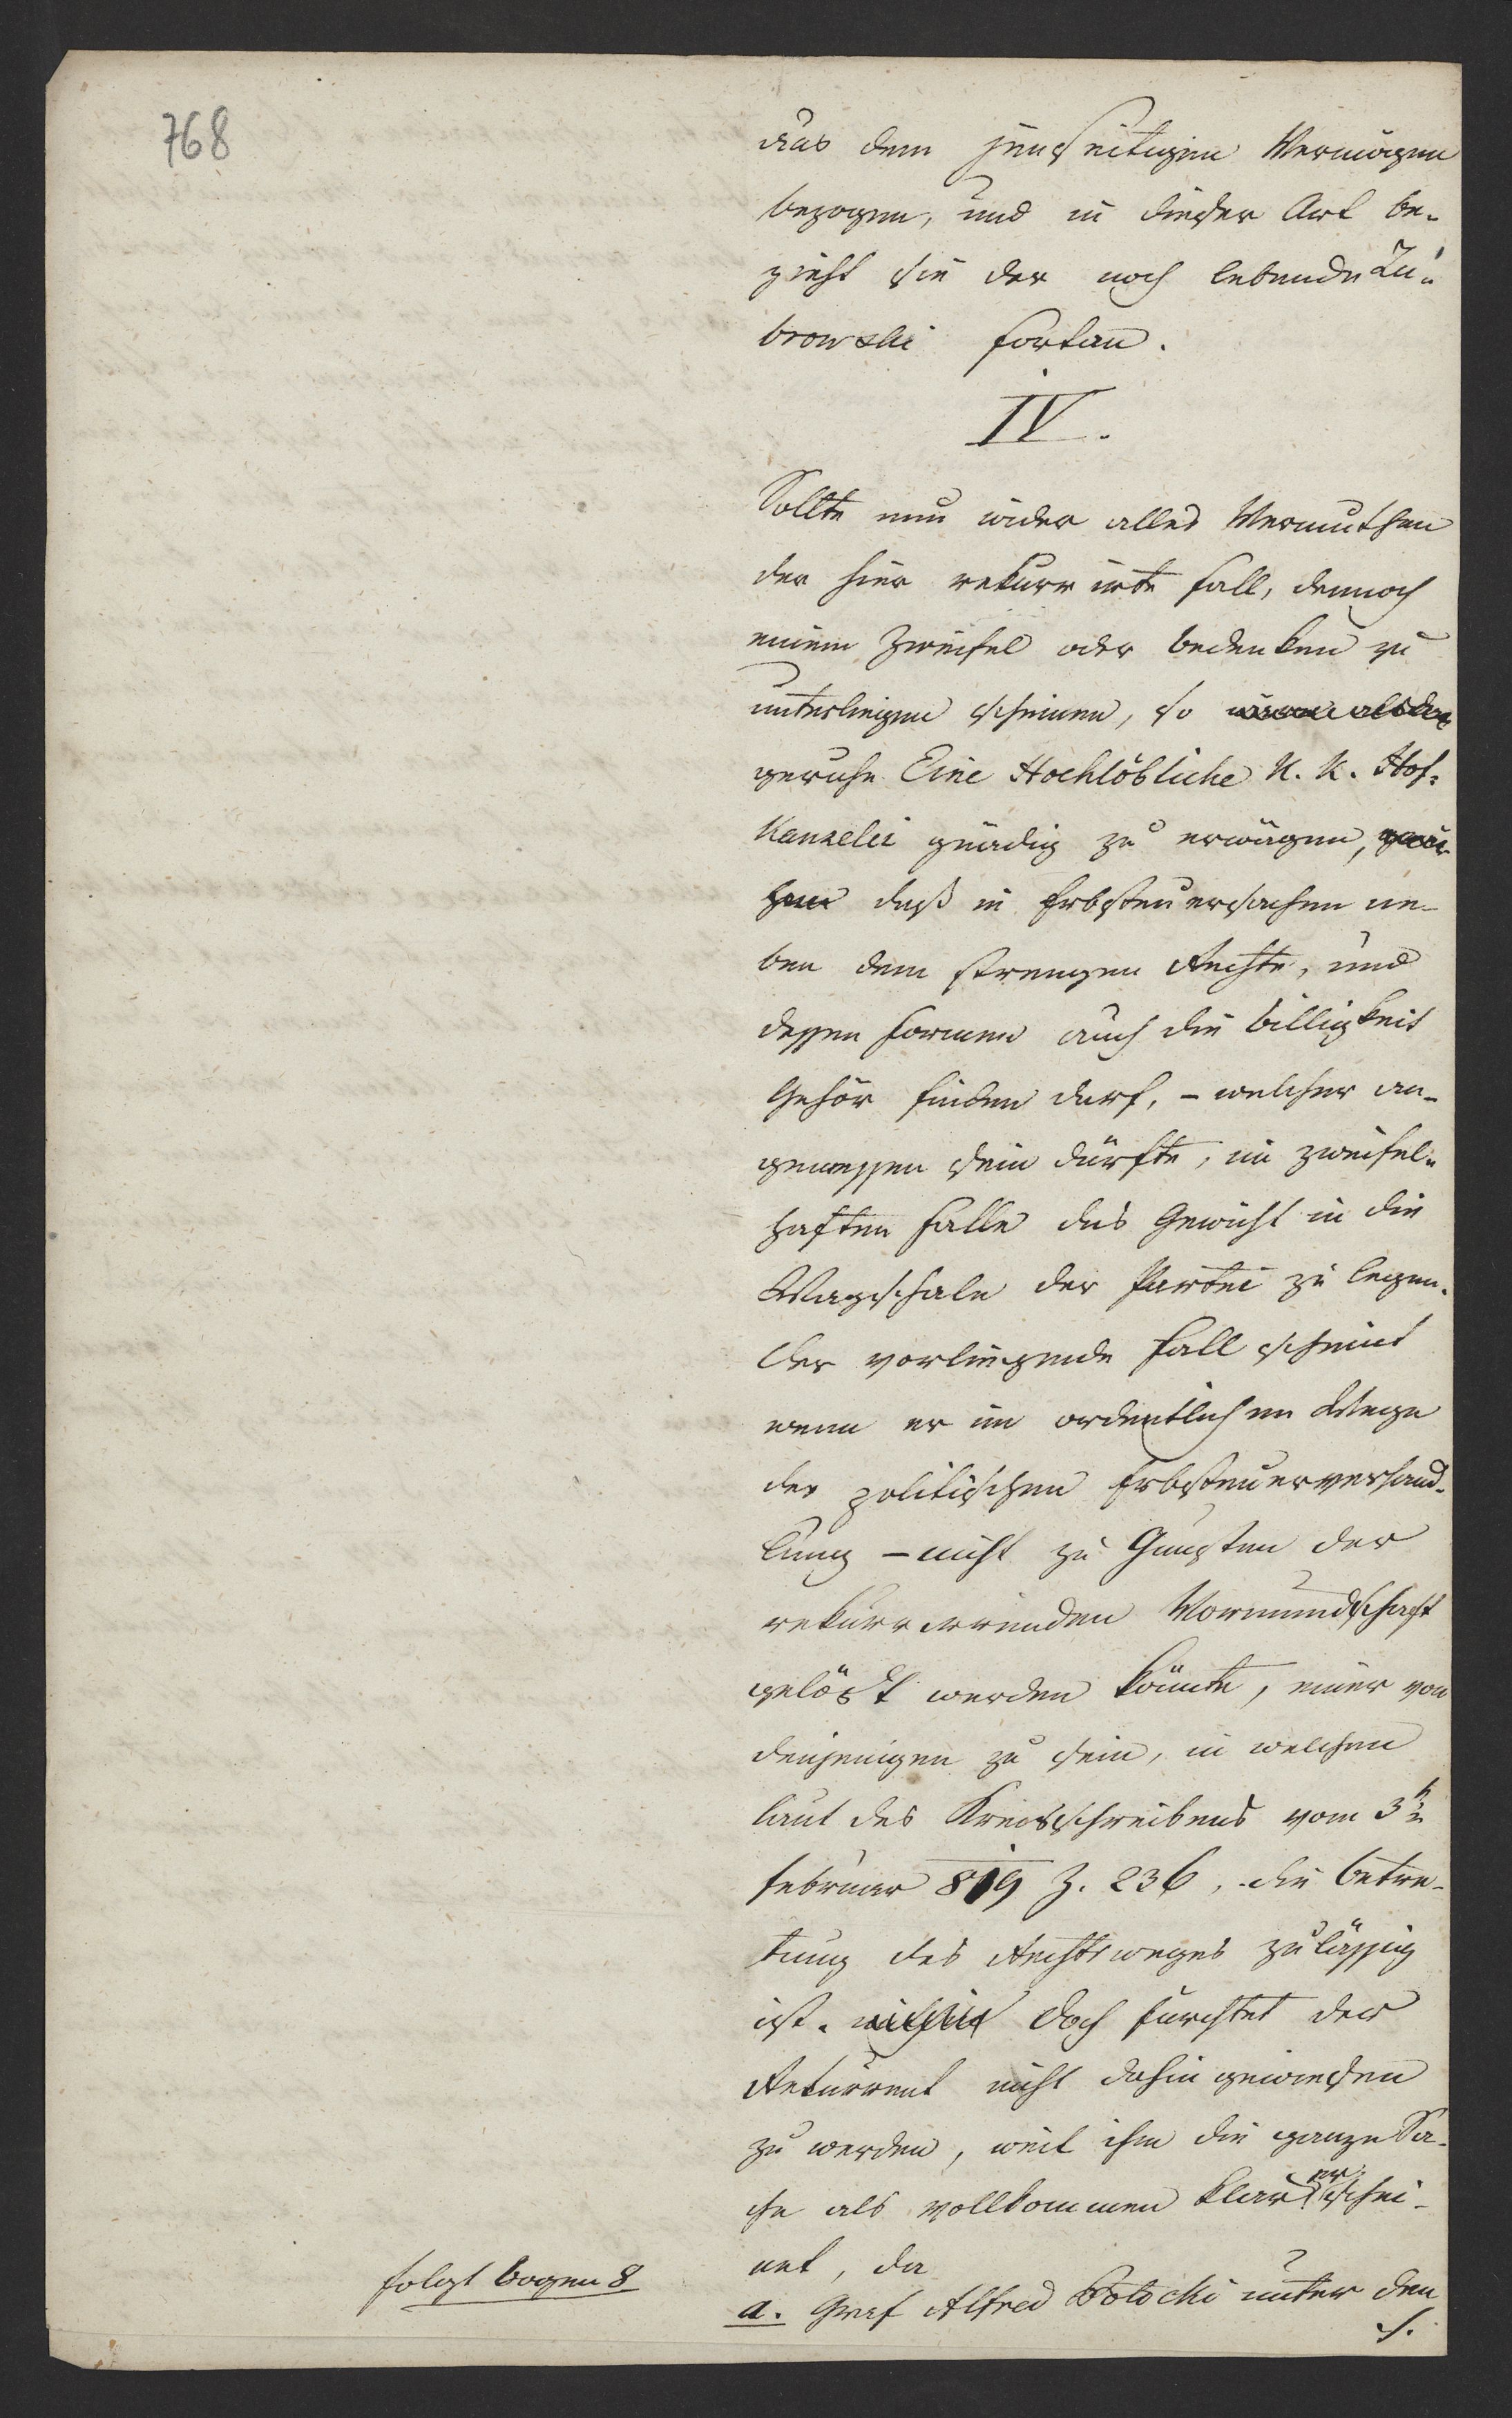 768
aus dem jenseitigen Vermögen
bezogen, und in dieser Art be-
zieht sie der noch lebende Zu-
browski fortan.
IV.
Sollte nun wider alles Vermuthen
der hier rekurrirte Fall, dennoch
einem Zweifel oder Bedenken zu
unterliegen scheinen, so
geruhe Eine Hochlöbliche K. K. Hof-
Kanzelei gnädig zu erwägen,
daß in Erbsteuersachen ne-
ben dem strengen Rechte, und
dessen Formen auch die Billigkeit
Gehör finden darf, – welcher an-
gemessen sein dürfte, im zweifel-
haften Falle das Gewicht in die
Wagschale der Partei zu legen.
Der vorliegende Fall scheint
wenn er im ordentlichen Wege
der politischen Erbsteuerverhand-
lung – nicht zu Gunsten der
rekurrirenden Vormundschaft
gelöst werden könnte, einer von
denjenigen zu sein, in welchen
laut des Kreisschreibens vom 3t
Februar 819 Z. 236, die Betre-
tung des Rechtsweges zulässig
ist. Doch fürchtet der
Rekurrent nicht dahin gewiesen
zu werden, weil ihm die ganze Sa-
che als vollkommen klar erschei-
net, da
a. Graf Alfred Potocki unter den
folgt Bogen 8
./.